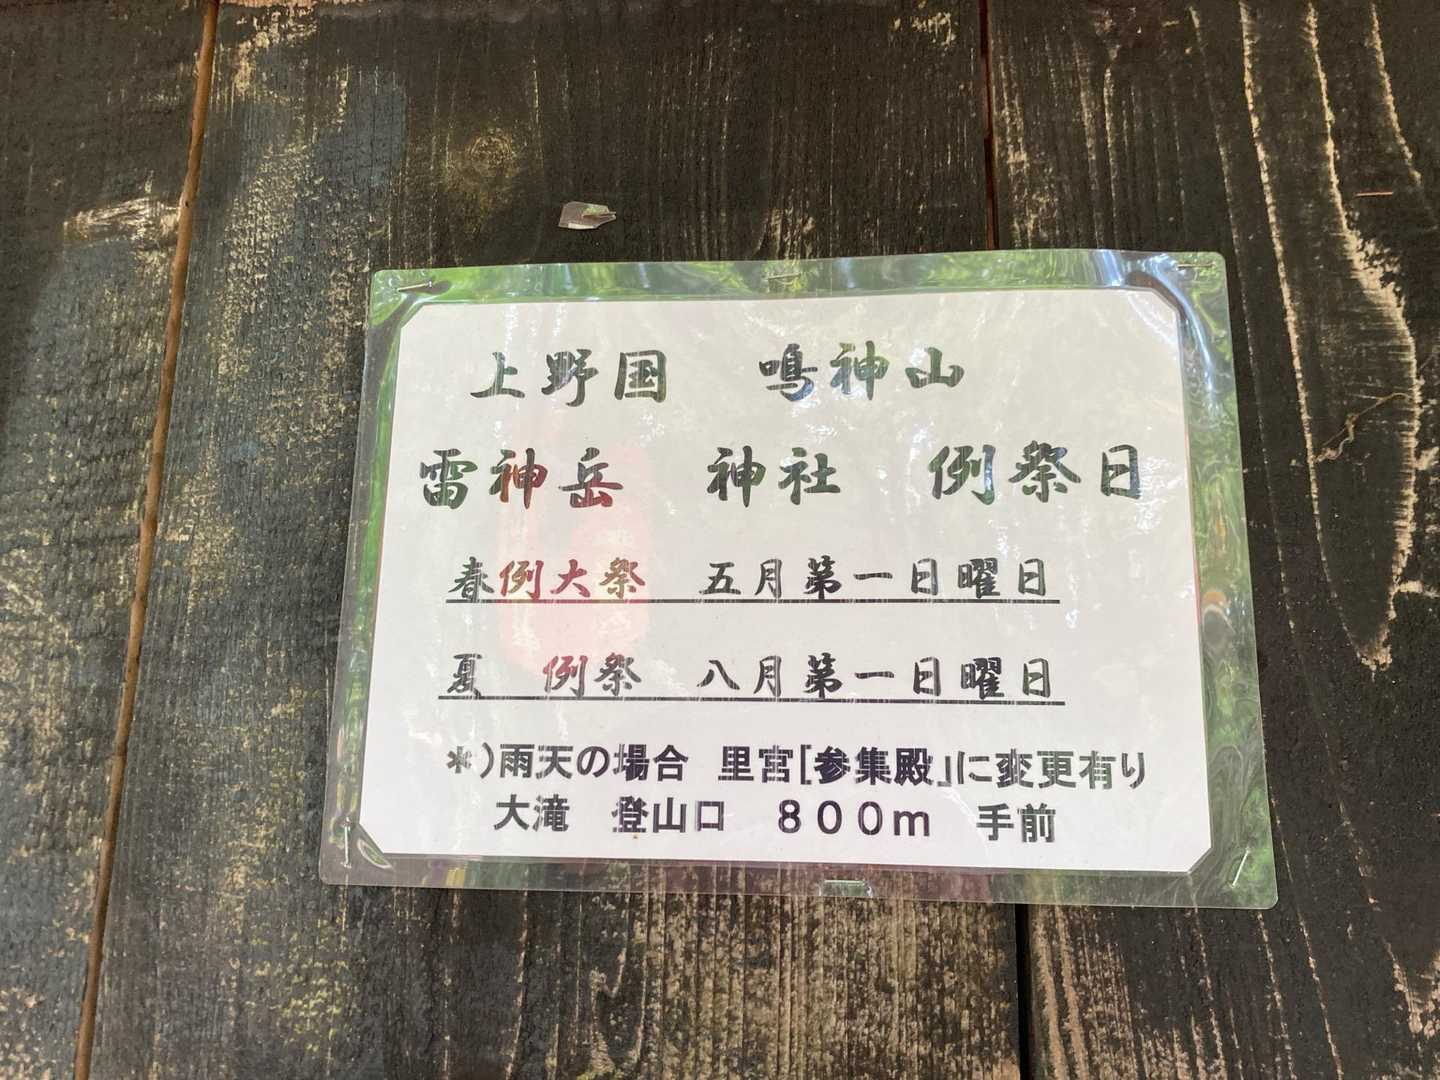 上野国　鳴神山
雷神岳　神社　例祭日
春例大祭　五月第一日曜日
夏　例祭　八月第一日曜日
＊）雨天の場合　里宮[参集殿」に変更有り
大滝　登山口　８００ｍ　手前